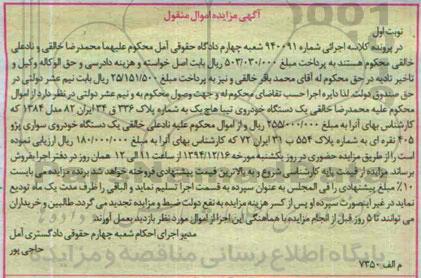 آگهی مزایده اموال منقول
نوبت اول
در پرونده کلاسه اجرائی شماره ۹۴۰۰۹۱ شعبه چهارم دادگاه حقوقی آمل محکوم علیهما محمدرضا خالقی و نادعلی
خالقی محکوم هستند به پرداخت مبلغ ۵۰۳/۰۳۰/۰۰۰ ریال بابت اصل خواسته و هزینه دادرسی و حق الوکاله وکیل و
تاخیر تادیه در حق محکوم له آقای محمد باقر خالقی و نیز به پرداخت مبلغ ۲۵/۱۵۱/۵۰۰ ریال بابت نیم عشر دولتی در
حق صندوق دولت لذا دایره اجرا حسب تقاضای محکوم له و جهت وصول محکوم به و نیم عشر دولتی در نظر دارد از اموال
محکوم علیه محمدرضا خالقی یک دستگاه خودروی تیبا هاچ بک به شماره پلاک ۳۳۶ ق ۳۴ ایران ۸۲ مدل ۱۳۸۴ که
کارشناس بهای آنرا به مبلغ ۲۵۵/۰۰۰/۰۰۰ ریال و از اموال محکوم علیه نادعلی خالقی یک دستگاه خودروی سواری پژو
۴۰۵ نقره ای به شماره پلاک ۵۵۴ ب ۳۱ ایران ۷۲ که کارشناس بهای آنرا به مبلغ ۱۸۰/۰۰۰/۰۰۰ ریال ارزیابی نموده
است را از طریق مزایده حضوری در روز یکشنبه مورخه ۱۳۹۴/۱۲/۱۶ از ساعت ۱۱ الی ۱۲ همان روز در دفتر اجرا بفروش
برساند. مزایده از قیمت پایه کارشناسی شروع و به بالاترین قیمت پیشنهادی فروخته خواهد شد برنده مزایده می بایست
۱۰٪ مبلغ پیشنهادی را فی المجلس به عنوان سپرده به قسمت اجرا تسلیم نماید و الباقی را ظرف مدت یک ماه تودیع
نماید در غیر اینصورت سپرده او پس از کسر هزینه مزایده به نفع دولت ضبط و مزایده تجدید می گردد. طالبین و خریداران
می توانند تا ۵ روز قبل از انجام مزایده با هماهنگی این اجرا از اموال مورد نظر بازدید بعمل آورند.
مدیر اجرای احکام شعبه چهارم حقوقی دادگستری آمل
حاجی پور
م الف ۷۳۵۰
پایگاه اطلاع رسانی مناقصه و مزایده